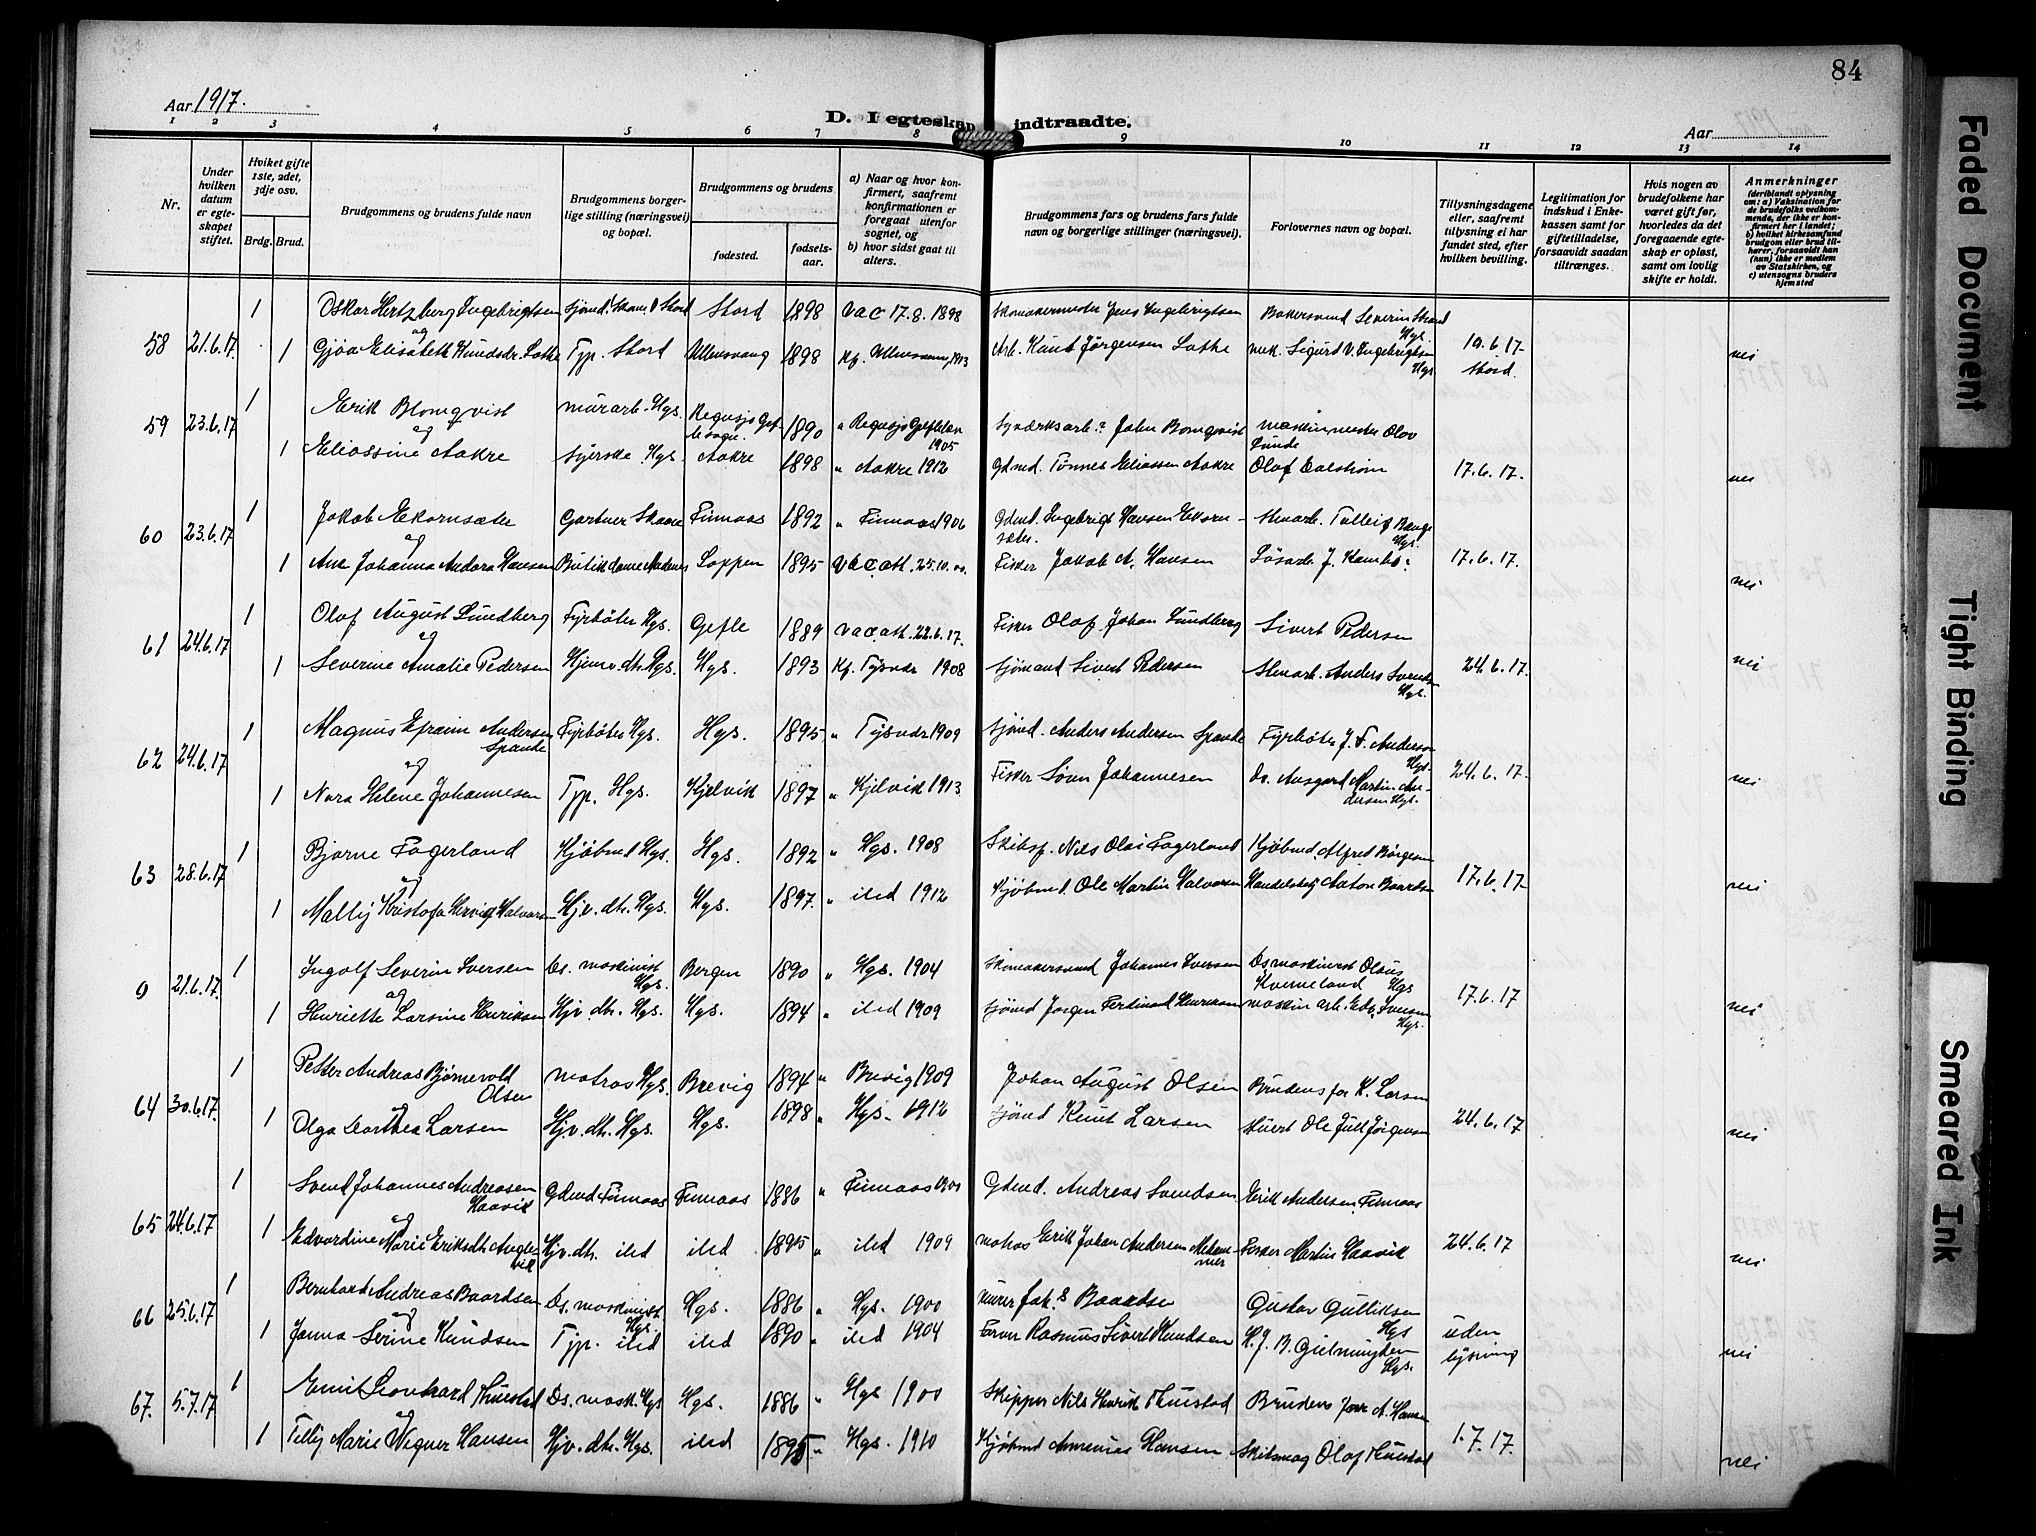 84
Aar 1917.
D. I egteskap indtraadte.
Aar
1 2 3 4 5 6 7 8 9 10 11 12 13 14
Nr.
Under hvilken datum er egteskapet stiftet.
Hviket gifte 1ste, 2det, 3dje osv.
Brdg. Brud.
Brudgommens og brudens fulde navn
Brudgommens borgerlige stilling (næringsvei) og bopæl.
Brudgommens og brudens
fødested.
fødselsaar.
a) Naar og hvor konfirmert, saafremt konfirmationen er foregaat utenfor sognet, og
b) hvor sidst gaat til alters.
Brudgommens fars og brudens fars fulde navn og borgerlige stillinger (næringsvei).
Forlovernes navn og bopæl.
Tillysningsdagene eller, saafremt tillysning ei har fundet sted, efter hvilken bevilling.
Legitimation for indskud i Enkekassen samt for giftetilladelse, forsaavidt saadan tiltrænges.
Hvis nogen av brudefolkene har været gift før, hvorledes da det foregaaende egteskap er opløst, samt om lovlig skifte er holdt.
Anmerkninger
(deriblandt oplysning om: a) Vaksination for de brudefolks vedkommende, der ikke er konfirmert her i landet; b) hvilket kirkesamfund brudgom eller brud tilhører, forsaavidt han (hun) ikke er medlem av Statskirken, og c) utensogns bruders hjemsted
1 Oskar Hertzberg Ingebrigtsen Sjømd. Stord 1898 Vac 17.8.1898 Skomakermester Jens Ingebrigtsen Bakersvend Severin Hgs.
58 21.6.17 og
1 Gjøa Elisabeth Knudsdr. Lothe Typ. Stord Ullensvang 1898 Kf. Ullensvang 1913 Arb. Knut Jørgensen Lothe Sigurd V. Ingebrigtsen Hgs 10.6.17 Stord. nei
1 Erik Blomqvist murarb. Hgs. 1890 1905 John Bomqvist maskinmester Olov Lunde
59 23.6.17 og
1 Eliassine Aakre Syerske Hgs. Aakre 1898 " Aakre 1912 Gdmd. Tønnes Eliassen Aakre Olaf Dalstrøm 17.6.17. nei
1 Jakob Ekornsæter Gartner Skaare Finnaas 1892 " Finnaas 1906 Gdmd. Ingebrigt Hansen Ekornsæter. Stenarb. Hgs.
60 23.6.17 og
1 Ane Johanna Andora Hansen Butikdame Loppen 1895 Vac.att. 25.10.00. Fisker Jakob A. Hansen Løsarb. J. 17.6.17. nei
1 Olaf August Lundberg Fyrbøter Hgs. Gefle 1889 Vac.att. 22.6.17. Fisker Olof Johan Lundberg Sivert Pedersen
61 24.6.17 og
1 Severine Amalie Pedersen Hjemv. dtr. Hgs. Hgs. 1893 Kf. Tysvær 1908 Sjømand Sivert Pedersen Stenarb. Anders Hgs. 24.6.17. nei
1 Magnus Efraim Andersen Spande Fyrbøter Hgs. Hgs. 1895 " Tysvær 1909 Sjømd. Anders Andersen Spande Fyrbøter J. T. Andersen Hgs.
62 24.6.17 og
1 Nora Helene Johannesen Typ. Hgs. Kjelvik 1897 " Kjelvik 1913 Fisker Sören Johannesen Ds. Martin Andersen Hgs. 24.6.17. nei
1 Bjarne Fagerland Kjøbmd Hgs. Hgs. 1892 " Hgs. 1908 Skibsf. Nils Olai Fagerland Kjøbmd. Alfred Børgesen
63 28.6.17 og
1 Mally Kristofa Hervig Halvorsen Hjv. dtr. Hgs. Hgs. 1897 " ibd 1912 Kjøbmd. Ole Martin Halvorsen Handelsbetj Anton Baardsen 17.6.17 nei
1 Ingolf Severin Iversen Ds. maskinist Hgs. Bergen 1890 " Hgs. 1904 Skomakersvend Johannes Iversen Ds maskinist Olaus Kverneland Hgs
9 21.6.17. og
1 Henriette Larsine Henriksen Hjv. dtr. Hgs. Hgs. 1894 " ibd 1909 Sjømd Jørgen Ferdinand Henriksen maskinarb. Edv. Iversen Hgs. 17.6.17 nei
1 Petter Andreas Bjørnevold Olsen Matros Hgs. Brevig 1894 " Brevig 1909 Johan August Olsen Brudens far K. Larsen
64 30.6.17. og
1 Olga Dorthea Larsen Hjv. dtr. Hgs. Hgs. 1898 " Hgs. 1912 Sjømd Knut Larsen Ole Jull Jørgensen 24.6.17 nei
1 Svend Johannes Andreasen Haavik Gdmd Finnaas Finnaas 1886 " Finnaas 1900 Gdmd. Andreas Svendsen Erik Andersen Finnaas
65 24.6.17 og
1 Edvardine Marie Eriksdtr. Hjv. dtr. ibd ibd 1895 " ibd 1909 Matros Erik Johan Andersen Fisker Martin Haavik 24.6.17 nei
1 Bernhard Andreas Baardsen Ds. maskinist Hgs. Hgs. 1886 " Hgs. 1900 Murer Joh.s Baardsen Gustav Gulliksen Hgs
66 25.6.17 og
1 Janna Serine Knudsen Typ. ibd ibd 1890 " ibd 1904 Rasmus Sivert Knudsen K. J. B. Gjelmuyden Hgs. uden lysning nei
1 Emil Leonhard Thuestad Ds. mask. Hgs Hgs. 1886 " Hgs 1900 Skipper Nils Henrik Thuestad Brudens far A. Hansen
67. 5.7.17 og
1 Tilly Marie Wegner Hansen Hjv. dtr. Hgs. ibd 1895 " Hgs. 1910 Kjøbmd Hansen Olaf Thuestad 1.7.17. nei
Faded Document
Tight Binding
Smeared Ink